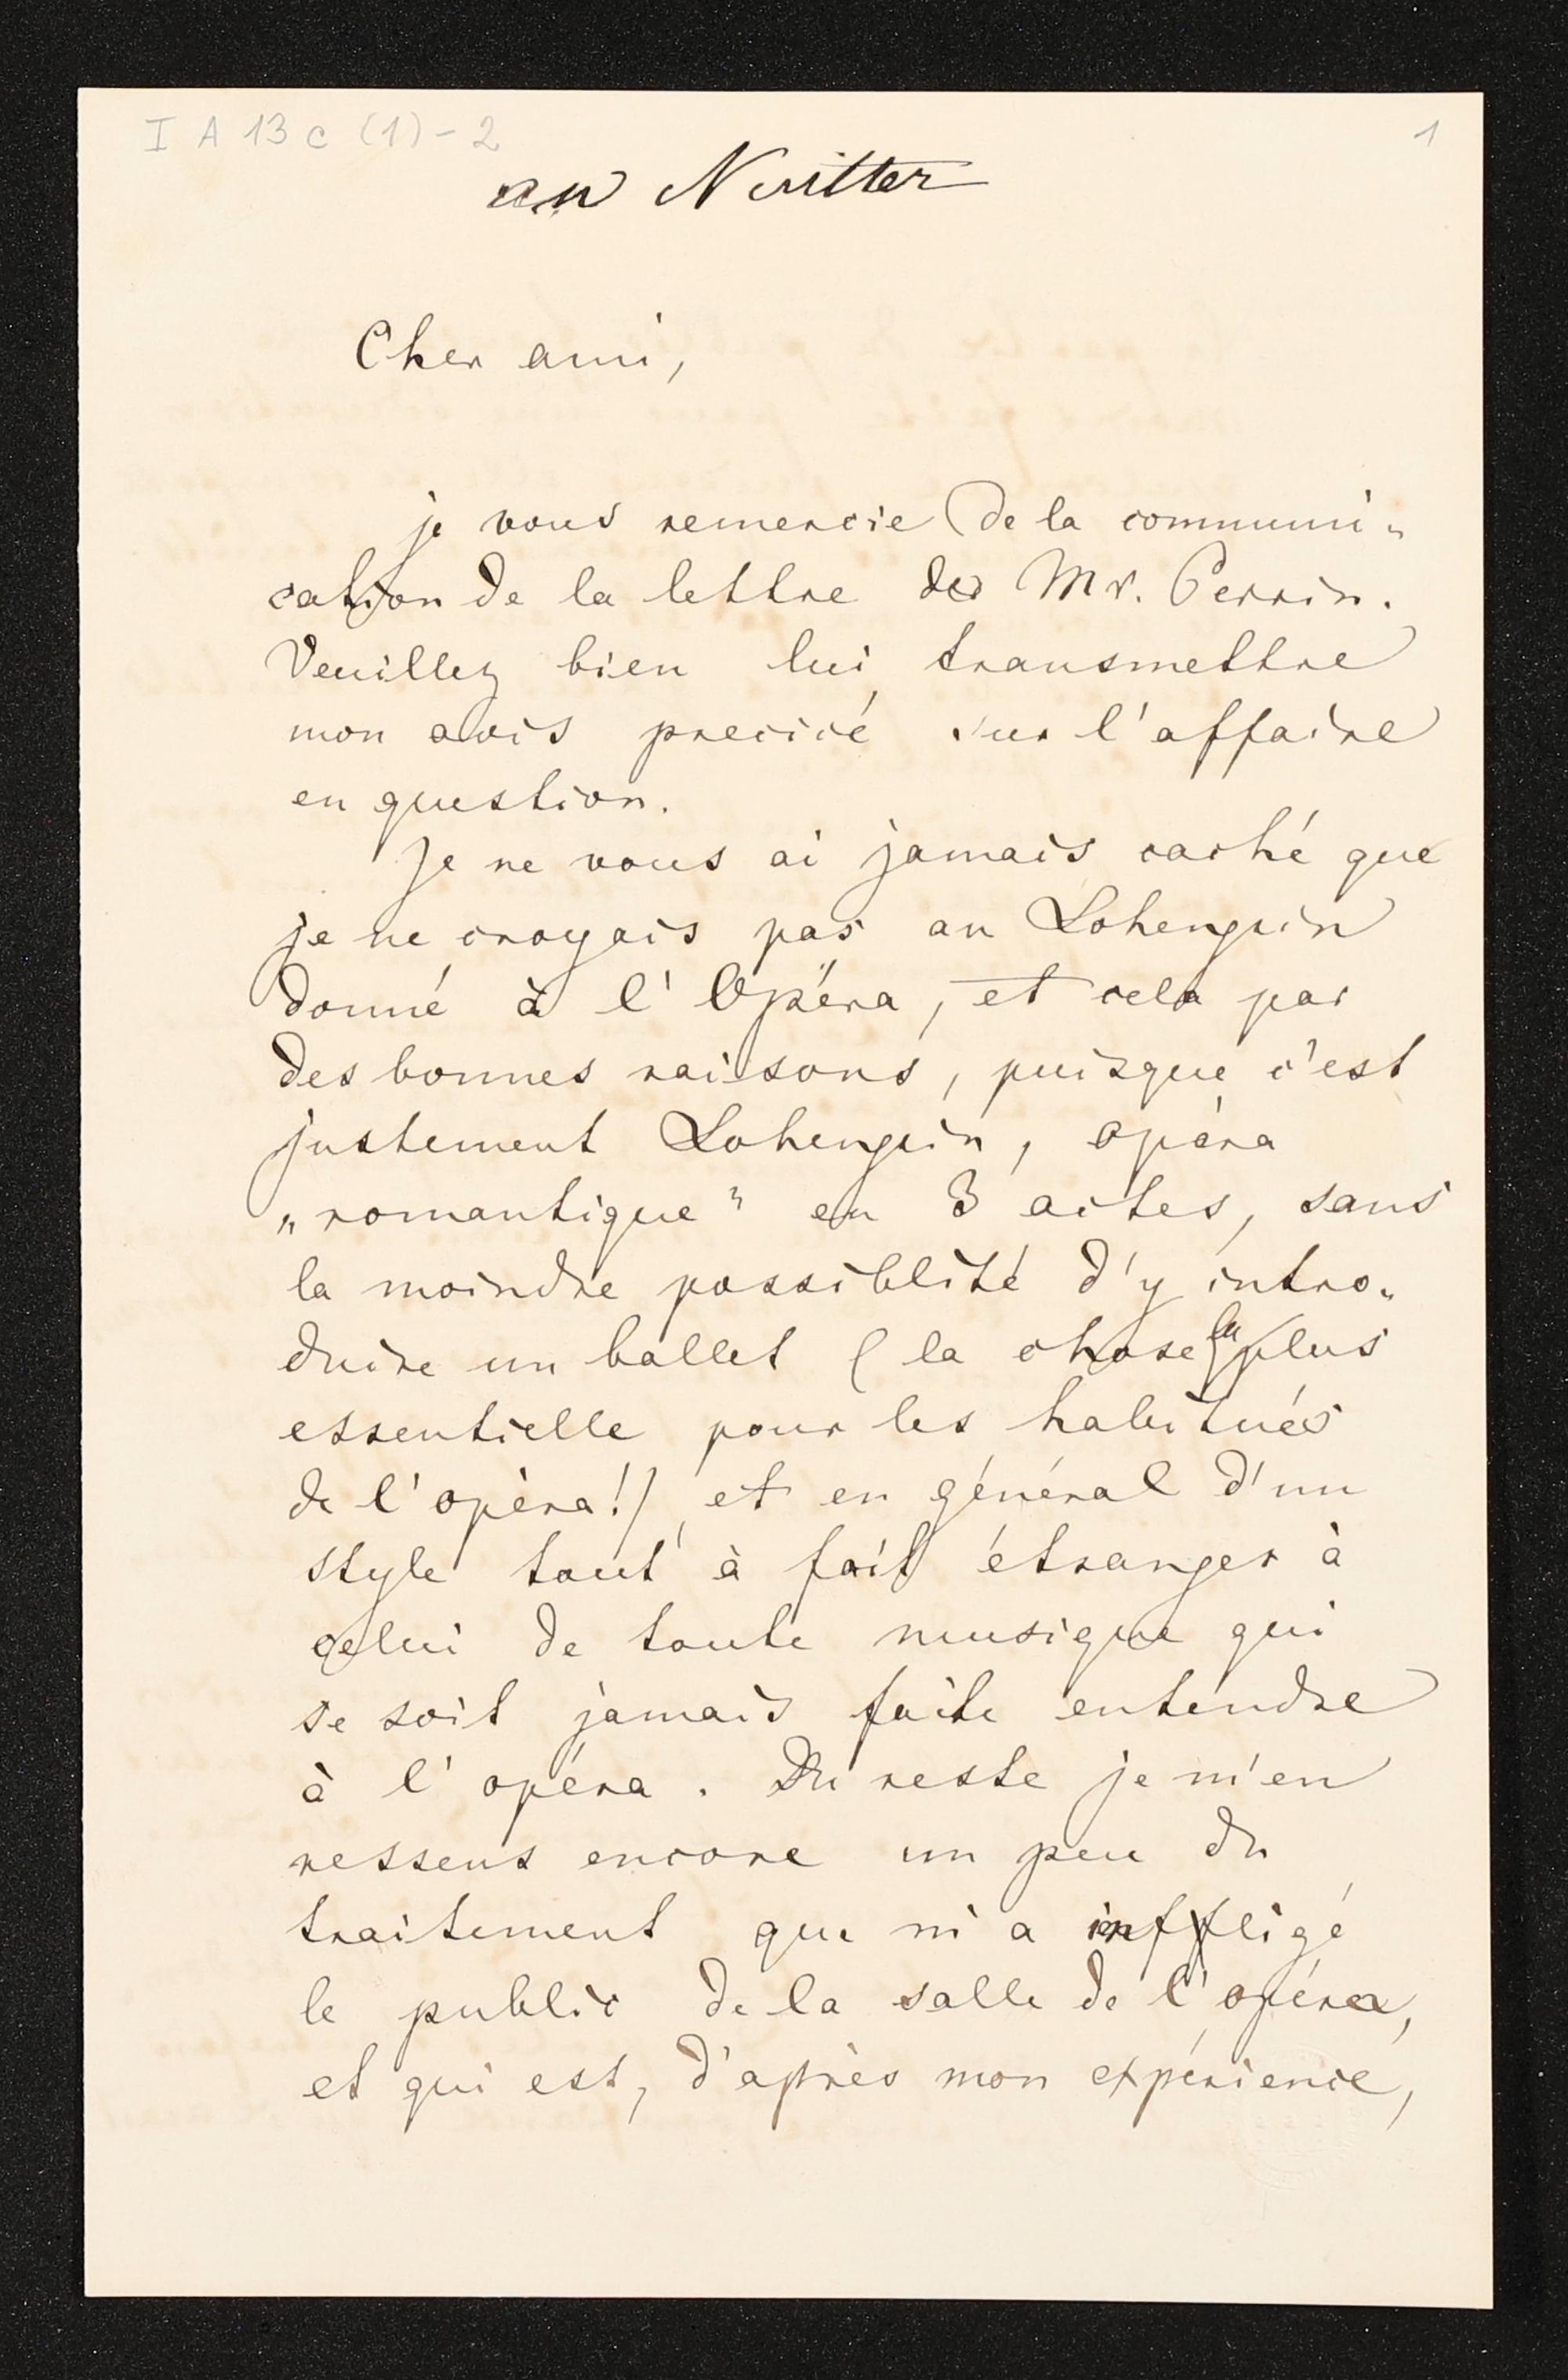 I A 13 c (1) - 2
1
an Nuitter
Cher ami,
je vous remercie de la communi-
cation de la lettre de Mr. Perrin.
Veuillez bien lui transmettre
mon avis precicé sur l'affaire
en question.
Je ne vous ai jamais caché que
je ne croyais pas au Lohengrin
donné à l'Opéra, et cela par
des bonnes raisons, puisque c'est
justement Lohengrin, opéra
„romantique" en 3 actes, sans
la moindre possiblité d'y intro-
duire un ballet (la chose la plus
essentielle pour les habitués
de l'opèra!), et en général d'un
style tout à fait étranger à
celui de toute musique qui
se soit jamais faite entendre
à l'opéra. Du reste je m'en
ressens encore un peu du
traitement que m'a infligé
le public de la salle de l'opéra,
et qui est, d'après mon expérience,